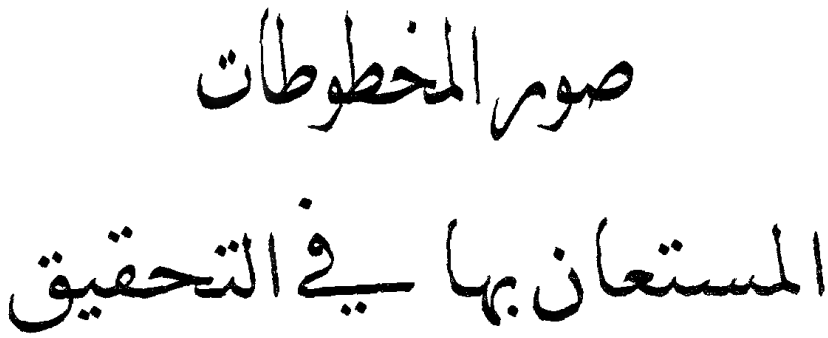 صور المخطوطات
المستعان بها في التحقيق